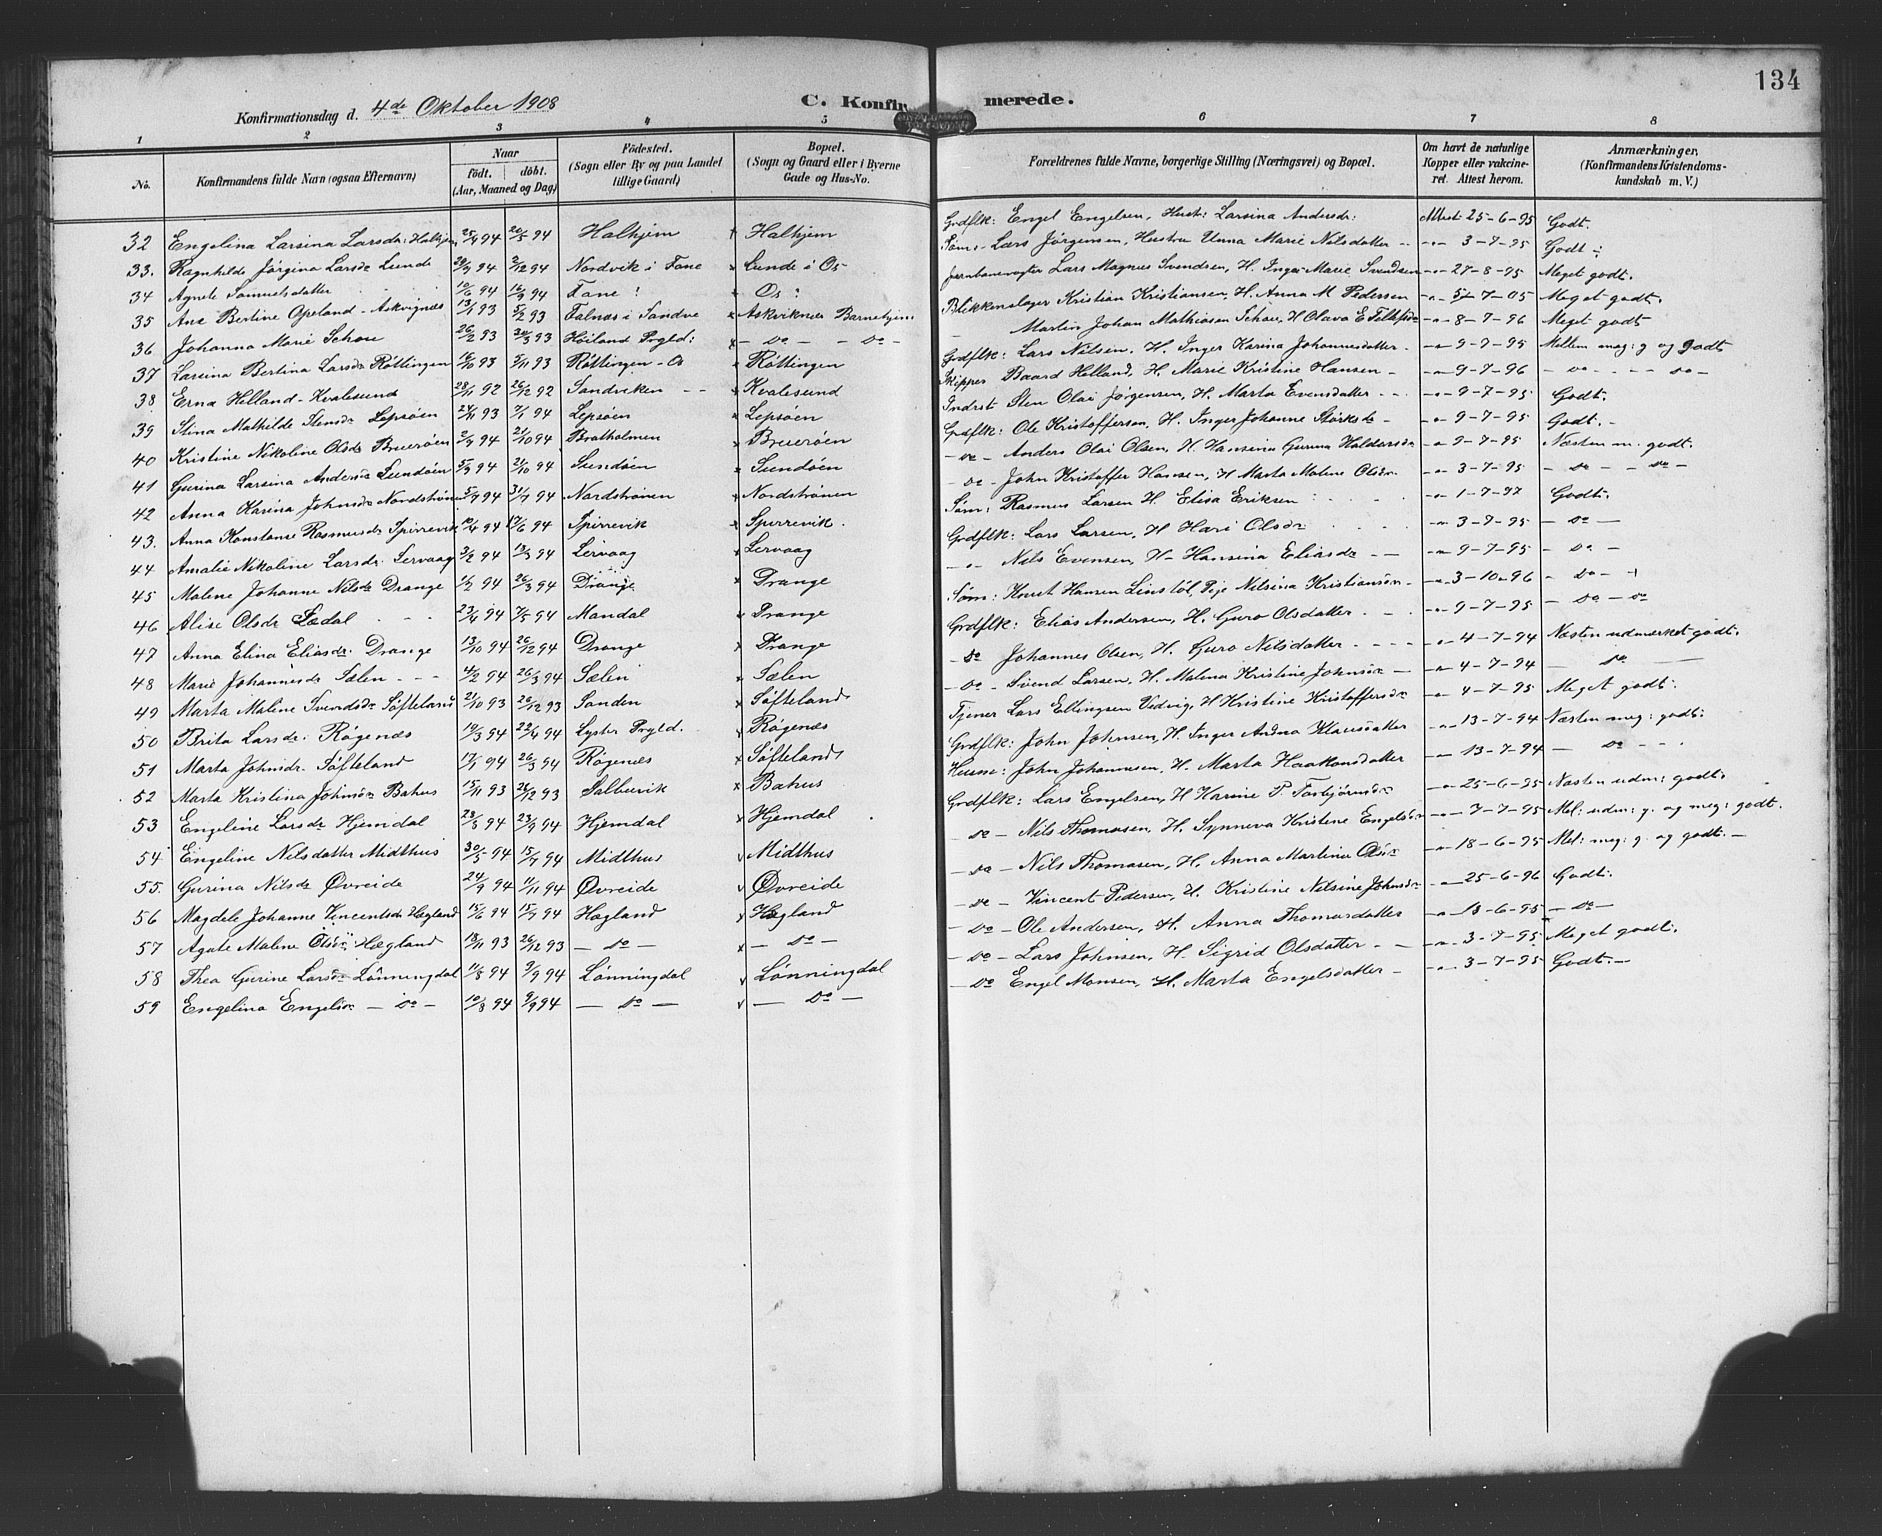 134
Konfirmationsdag d. 4de Oktober 1908
C. Konfirmerede.
1 2 3 4 5 6 7 8
No. Konfirmandens fulde Navn (ogsaa Efternavn) Naar født. døbt. (Aar, Maaned og Dag) Fødested. (Sogn eller By og paa Landet tillige Gaard) Bopæl. (Sogn og Gaard eller i Byerne Gade og Hus-No. Forældrenes fulde Navne, borgerlige Stilling (Næringsvei) og Bopæl. Om havt de naturlige Kopper eller vakcineret. Attest herom. Anmærkninger, (Konfirmandens Kristendomskundskab m. V.)
32 Engelina Larsina Larsdr: Halhjem 25/4 94 20/5 94 Halhjem Halhjem Grdflk: Engel Engelsen, Hust: Larsina Andersdr: Attest 25-6-95 Godt.
33. Ragnhilde Jørgina Larsdr Lunde 94 2/12 94 Nordvik i Fane Lunde i Os Søm: Lars Jørgensen, Hustru Unna Marie Nilsdatter -"- 3-7-95 Godt:
34 Agnete Samuelsdatter 10/6 94 16/9 94 Fane: Os: Jernbanevogter Lars Magnus Svendsen, H. Inger Marie Svendsen -"- 27-8-95 Meget godt.
35 Ane Bertine Opeland - Askvignes 13/1 93 5/2 93 Falnæs i Sandve Askviknes Barnehjem Blikkenslager Kristian Kristiansen, H. Anna M Pedersen -"- 5-7-05 Meget godt.
36 Johanna Marie Schou 26/2 93 93 Høiland Prgld: - do - - do - Martin Johan Mathiasen Schou, H Olava E -"- 8-7-96 Meget godt
37 Larsina Bertina Larsdr Røttingen 16/10 93 5/11 93 Røttingen - Os Røttingen Grdflk: Lars Nilsen, H. Inger Karina Johannesdatter - -"- 9-7-95 Mellem meg: g og godt
38 Erna Helland - Kvalesund 28/11 92 26/12 92 Sandviken - - Kvalesund Skipper Baard Helland, H. Marie Kristine Hansen - -"- 9-7-96 - do - - - - do -
39 Stina Mathilde Stensdr Lepsøen 93 7/1 94 Lepsøen Lepsøen Indrst Sten Olai Jørgensen, H. Marta Evensdatter - - -"- 9-7-95 Godt.
40 Kristine Nikoline Olsdr Bruerøen 2/9 94 21/10 94 Bratholmen Bruerøen Grdflk: Ole Kristoffersen, H. Inger Johanne Størksdr - -"- 9-7-95 Godt. -
41 Gurina Larsina Andersdr Sundøen 94 21/10 94 Sundøen Sundøen - do - Anders Olai Olsen, H. Hansina Gurina Haldorsdr -"- 9-7-95 Næsten m: godt.
42 Anna Karina Johnsdr Nordstrønen 94 94 Nordstrønen Nordstrønen - do - John Kristoffer Hansen, H Marta Malene Olsdr -"- 3-7-95 - do - - do -
43. Anna Konstanse Rasmusdr Spirrevik 94 17/6 94 Spirrevik Spirrevik. Søm: Rasmus Larsen H. Elisa Eriksen -"- 1-7-97 Godt.
44 Amalie Nikoline Larsdr: Lervaag 2/2 94 94 Lervaag Lervaag Grdflk: Lars Larsen, H Hari Olsdr -"- 3-7-95 - do -
45 Malene Johanne Nilsdr Drange 94 26/3 94 Drange Drange - " - Nils Evensen, H - Hansina Eliasdr - - -"- 9-7-95 - do -
46 Alise Olsdr Lædal 23/4 94 7/5 94 Mandal Drange Søm: Knut Hansen Linstøl, Pige Nilsina Kristiansdr -"- 3-10-96 - do -
47 Anna Elina Eliasdr: Drange 13/10 94 26/12 94 Drange Drange Grdflk: Elias Andersen, H. Guro Olsdatter -"- 9-7-95 - do - do
48 Marie Johannesdr Sælen - - - 4/2 94 26/3 94 Sælen Sælen - do Johannes Olsen, H. Guro Nilsdatter - - - - -"- 4-7-94 Næsten udmærket godt.
49 Marta Malene Svendsdr Søfteland 21/10 93 26/12 93 Sanden Søfteland - do - Svend Larsen, H. Malena Kristine Johnsdr - -"- 4-7-94 - do -
50 Brita Larsdr: Røgenæs 19/3 94 22/4 94 Lyster Prgld. Røgenæs Tjener Lars Ellingsen Vedvig, H Kristine Kristoffersdr -"- 4-7-95 Meget godt:
51 Marta Johnsdr: Søfteland 17/1 94 26/3 94 Røgenæs Søfteland Grdflk: John Johnsen, H. Inger Andrea Klausdatter -"- 13-7-94 Næsten meg: godt:
52 Marta Kristina Johnsdr Bahus 15/11 93 26/12 93 Salbuvik Bahus Husm: John Johannesen, H. Marta Haakonsdatter -"- 13-7-94 - do - - -
53 Engeline Larsdr Hjemdal 23/3 94 23/9 94 Hjemdal Hjemdal Grdflk: Lars Engelsen, H Karine P. Torbjørnsdr -"- 25-6-95 Næsten udm: godt.
54 Engeline Nilsdatter Midthus 30/5 94 15/7 94 Midthus Midthus - do - Nils Thomasen, H. Synneva Kristene Engelsdr -"- 7-7-95 Mel: udm: g. og meg: godt.
55. Gurina Nilsdr Øvreide 24/9 94 11/11 94 Øvreide Øvreide - do - Nils Thomasen, H. Anna Martina Olsdr -"- 18-6-95 Mel: meg: g. og godt: -
56 Magdele Johanne Vincentsdr Hægland 15/6 94 15/7 94 Hægland Hægland - do - Vincent Pedersen, H. Kristine Nilsine Johnsdr -"- 25-6-96 Godt:
57 Agate Malene Olsdr Hægland 18/11 93 26/12 93 - do - - do - - do - Ole Andersen, H. Anna Thomasdatter -"- 18-6-95 - do -
58 Thea Gurine Larsdr Lønningdal 11/8 94 9/9 94 Lønningdal Lønningdal - do - Lars Johnsen, H. Sigrid Olsdatter - - -"- 3-7-95 Meget godt:
59 Engelina Engelsdr - do - 10/8 93 9/9 94 - do - - do - - do Engel Monsen, H. Marta Engelsdatter - -"- 3-7-95 Godt: -